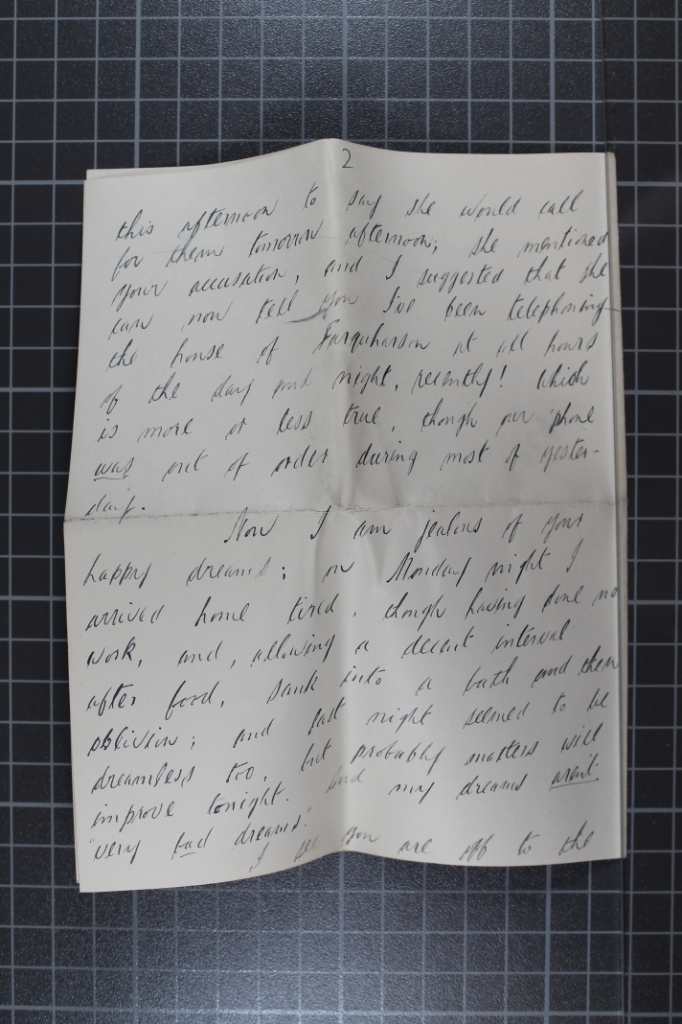 2
this afternoon to say she would call
for them tomorrow afternoon; she mentioned
your accusation, and I suggested that she
can now tell you I've been telephoning
the house of Farquharson at all hours
of the day and night, recently! Which
is more or less true, though our 'phone
was out of order during most of yester-
day.
Now I am jealous of your
happy dreams; on Monday night I
arrived home tired, though having done no
work, and, allowing a decent interval
after food, sank into a bath and then
oblivion; and last night seemed to be
dreamless too, but probably matters will
improve tonight. And my dreams aren't
"very bad dreams."
I see you are off to the